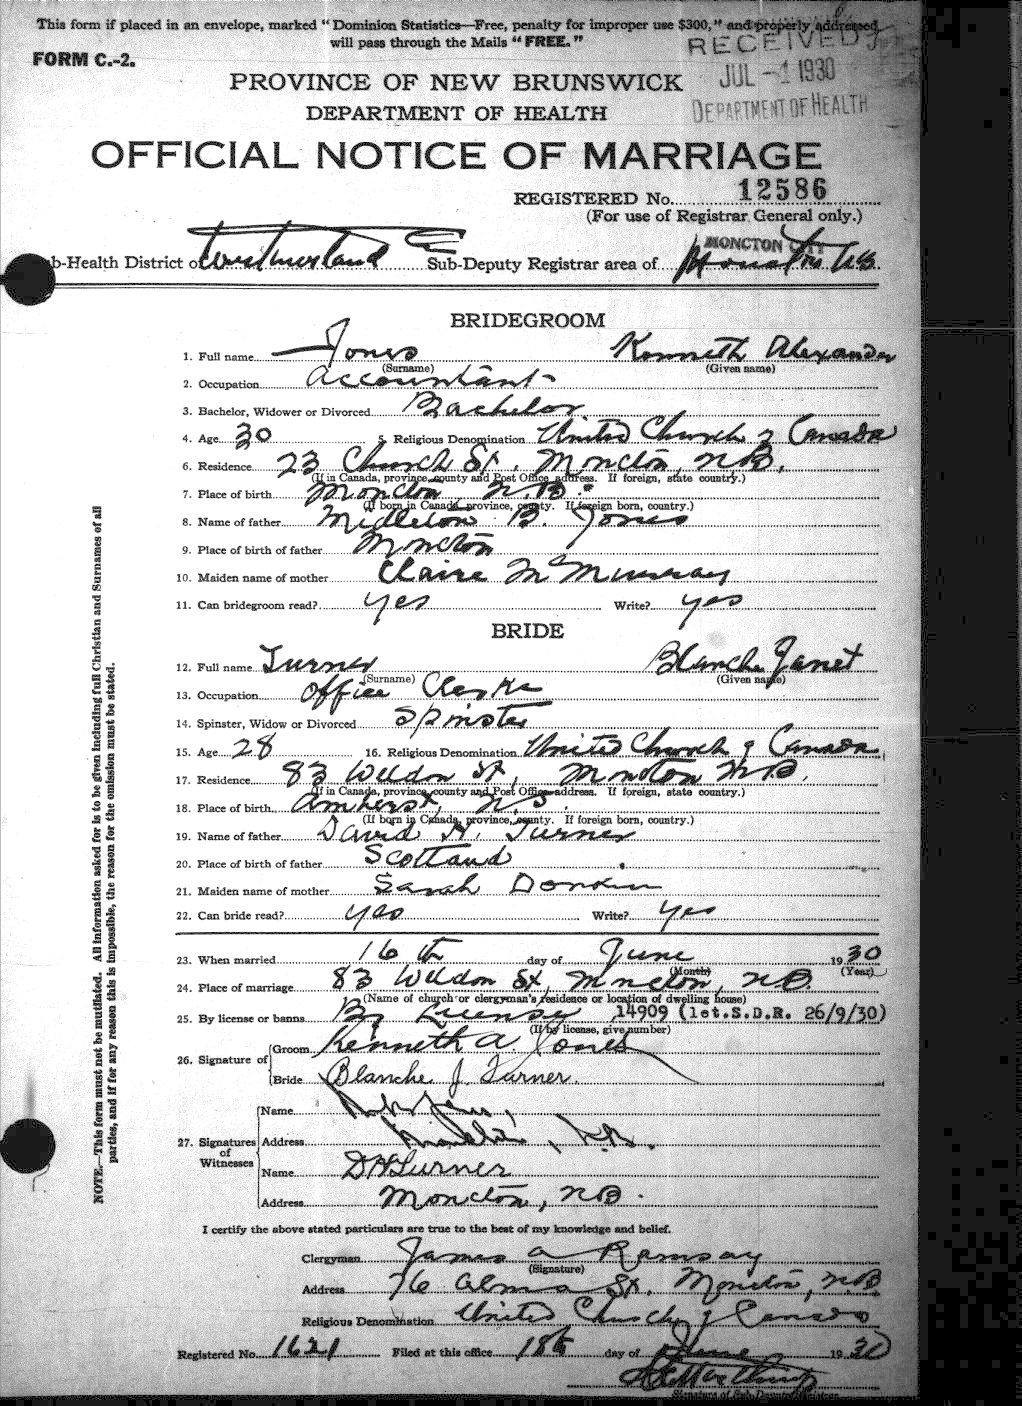 This form if placed in an envelope, marked "Dominion Statistics—Free, penalty for improper use $300," and properly addressed,
will pass through the Mails "FREE."
FORM C.-2.
RECEIVED
JUL -1 1930
DEPARTMENT OF HEALTH
PROVINCE OF NEW BRUNSWICK
DEPARTMENT OF HEALTH
OFFICIAL NOTICE OF MARRIAGE
REGISTERED No. 12586
(For use of Registrar General only.)
MONCTON CITY
Sub-Health District of Westmorland Sub-Deputy Registrar area of Moncton NB.
BRIDEGROOM
1. Full name Jones Kenneth Alexander
(Surname) (Given name)
2. Occupation accountant
3. Bachelor, Widower or Divorced Bachelor
4. Age 30 5. Religious Denomination United Church of Canada
6. Residence 23 Church St. Moncton, N.B.
(If in Canada, province, county and Post Office address. If foreign, state country.)
7. Place of birth Moncton N.B.
(If born in Canada, province, county. If foreign born, country.)
8. Name of father Midleton B. Jones
9. Place of birth of father Moncton
10. Maiden name of mother Claire McMurray
11. Can bridegroom read? yes Write? yes
BRIDE
12. Full name Turner Blanche Janet
(Surname) (Given name)
13. Occupation Office Clerk
14. Spinster, Widow or Divorced Spinster
15. Age 28 16. Religious Denomination United Church of Canada
17. Residence 83 Weldon St, Moncton N.B.
(If in Canada, province, county and Post Office address. If foreign, state country.)
18. Place of birth Amherst, N.S.
(If born in Canada, province, county. If foreign born, country.)
19. Name of father David H. Turner
20. Place of birth of father Scotland
21. Maiden name of mother Sarah Donkin
22. Can bride read? yes Write? Yes
23. When married 16th day of June 1930
(Month) (Year)
24. Place of marriage 83 Weldon St, Moncton, N.B.
(Name of church or clergyman's residence or location of dwelling house)
25. By license or banns By License 14909 (let.S.D.R. 26/9/30)
(If by license, give number)
26. Signature of Groom Kenneth A. Jones
Bride Blanche J. Turner.
27. Signatures of Witnesses
Name
Address N.B.
Name D H Turner
Address Moncton, N.B.
I certify the above stated particulars are true to the best of my knowledge and belief.
Clergyman James A Ramsay
(Signature)
Address 76 Alma St. Moncton, N.B.
Religious Denomination United Church of Canada
Registered No. 1621 Filed at this office 18th day of June 1930
Signature of Sub-Deputy Registrar
NOTE.—This form must not be mutilated. All information asked for is to be given including full Christian and Surnames of all
parties, and if for any reason this is impossible, the reason for the omission must be stated.